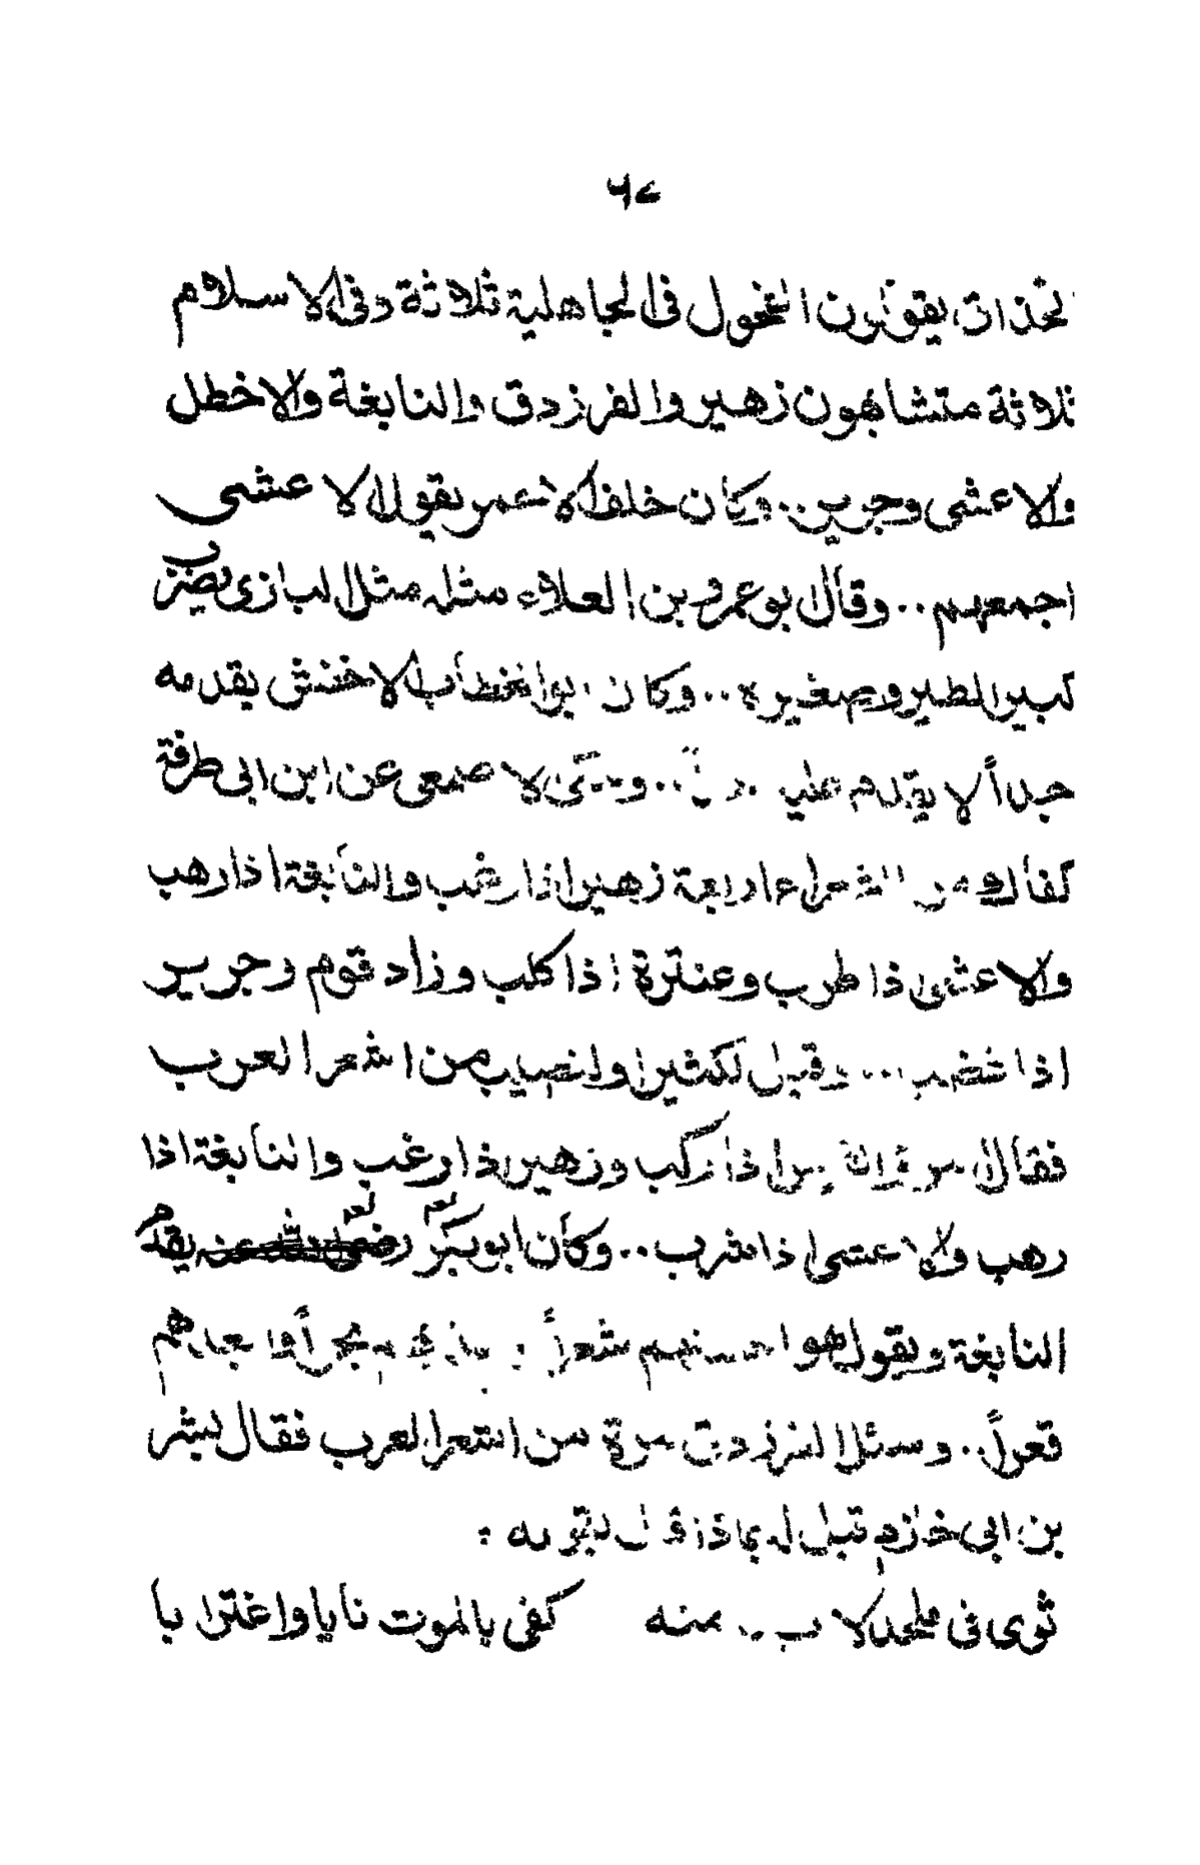 الحذاق يقولون الفحول فى الجاهلية ثلاثة وفى الاسلام
ثلاثة متشابهون زهير والفرزدق والنابغة والاخطل
والاعشى وجرير.. وكان خلف الاحمر يقول الاعشى
اجمعهم.. وقال ابو عمرو بن العلاء مثله مثل البازى يضرب
كبير الطير وصغيره.. وكان ابو الخطاب الاخفش يقدمه
جداً لا يقدم عليه.. الاصمعى عن ابن ابى طرفة
كفاك من الشعراء اربعة زهير اذا رغب والنابغة اذا رهب
والاعشى اذا طرب وعنترة اذا كلب وزاد قوم وجرير
اذا غضب... وقيل لكثير او لنصيب من اشعر العرب
فقال اذا ركب وزهير اذا رغب والنابغة اذا
رهب والاعشى اذا شرب.. وكان ابو بكر رضى الله عنه يقدم
النابغة ويقول هو احسنهم شعراً بحراً وابعدهم
قعراً.. وسئل الفرزدق مرة من اشعر العرب فقال بشر
بن ابى خازم قيل له بماذا قال بقوله :
ثوى فى ملحد لا بد منه كفى بالموت نايا واغترابا